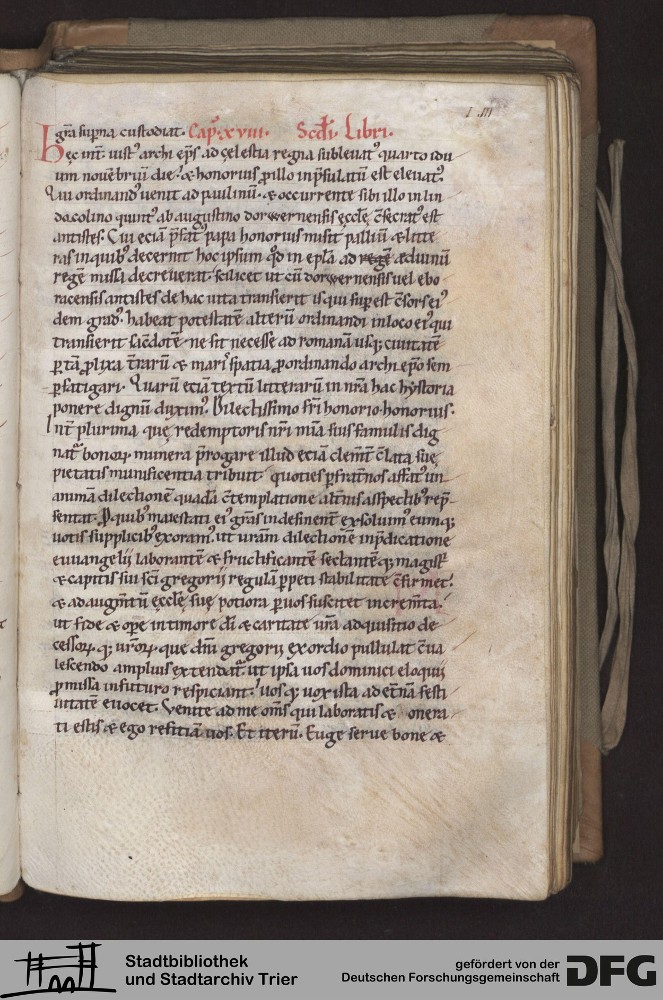 I .III
gr̄a sup̄na custodiat. Cap̄. xviii. Scd̄i. Libri.
Hęc int̄ iustꝰ archi ep̄s ad çelestia regna subleuatꝰ quarto idu
um nouēbriū die. & honoriusꝑ illo inp̄sulatū est eleuatꝰ.
Qui ordinandꝰ uenit ad paulinū. & occurrente sibi illo in lin
docolino quintꝰ ab augustino dorwernensis ęccłę c̄secratꝰ est
antistes. Cui eciā p̄fatꝰ papa honorius misit palliū & litte
ras in quibꝰ decernit hoc ipsum qd̄ in ep̄la ad regē ædiuinū
regē missa decreuerat. scilicet ut cū dorwernensis uel ebo
racensis antistes de hac uita transierit is qui sup̄ est c̄sors eiꝰ
dem gradꝰ. habeat potestatē alterū ordinandi in loco eiꝰ qui
transierit sac̄dotē. ne sit necesse ad romanā usq; ciuitatē
ꝑ tā ꝓlixa t̄rarū & marisꝰ spatia ꝓ ordinando archi ep̄o sem
ꝑ fatigari. Quarū eciā textū litterarū in nr̄a hac hystoria
ponere dignū duximꝰ. Dilectissimo fr̄i honorio. honorius.
Int̄ plurima que redemptoris nr̄i mīa suis famulis dig
natꝰ bonoꝝ munera p̄rogare illud eciā clem̄t c̄lata suę
pietatis munificentia tribuit. quoties ꝑ frat̄nos affatꝰ un
animā dilectionē quadā c̄templatione alt̄nis asspectibꝰ rep̄
sentat. P quibꝰ maiestati eiꝰ gr̄as indefinent̄ exsoluimꝰ eumq;
uotis supplicibꝰ exoramꝰ. ut ur̄am dilectionē inp̄dicatione
euuangelii laborantē & fructificantē sectantēq; magist̄
& capitis sui sc̄i gregorii regulā ꝑpeti stabilitate c̄firmet.
& ad augm̄tū ęccłę suę potiora ꝑ uos suscitet increm̄ta.
ut fide & ope in timore dī & caritate ur̄a adquisitio de
cessoꝝ q; ur̄oꝝ. que dn̄i gregorii exordio pullulat c̄ua
lescendo amplius extendat̄. ut ipsa uos dominici eloquii
ꝓmissa in futuro respiciant. uos q; uox ista ad et̄nā festi
uitatē euocet. Venite ad me om̄s qui laboratis & onera
ti estis & ego reficiā uos. Et iterū. Euge serue bone &
Stadtbibliothek
und Stadtarchiv Trier
gefördert von der
Deutschen Forschungsgemeinschaft
DFG